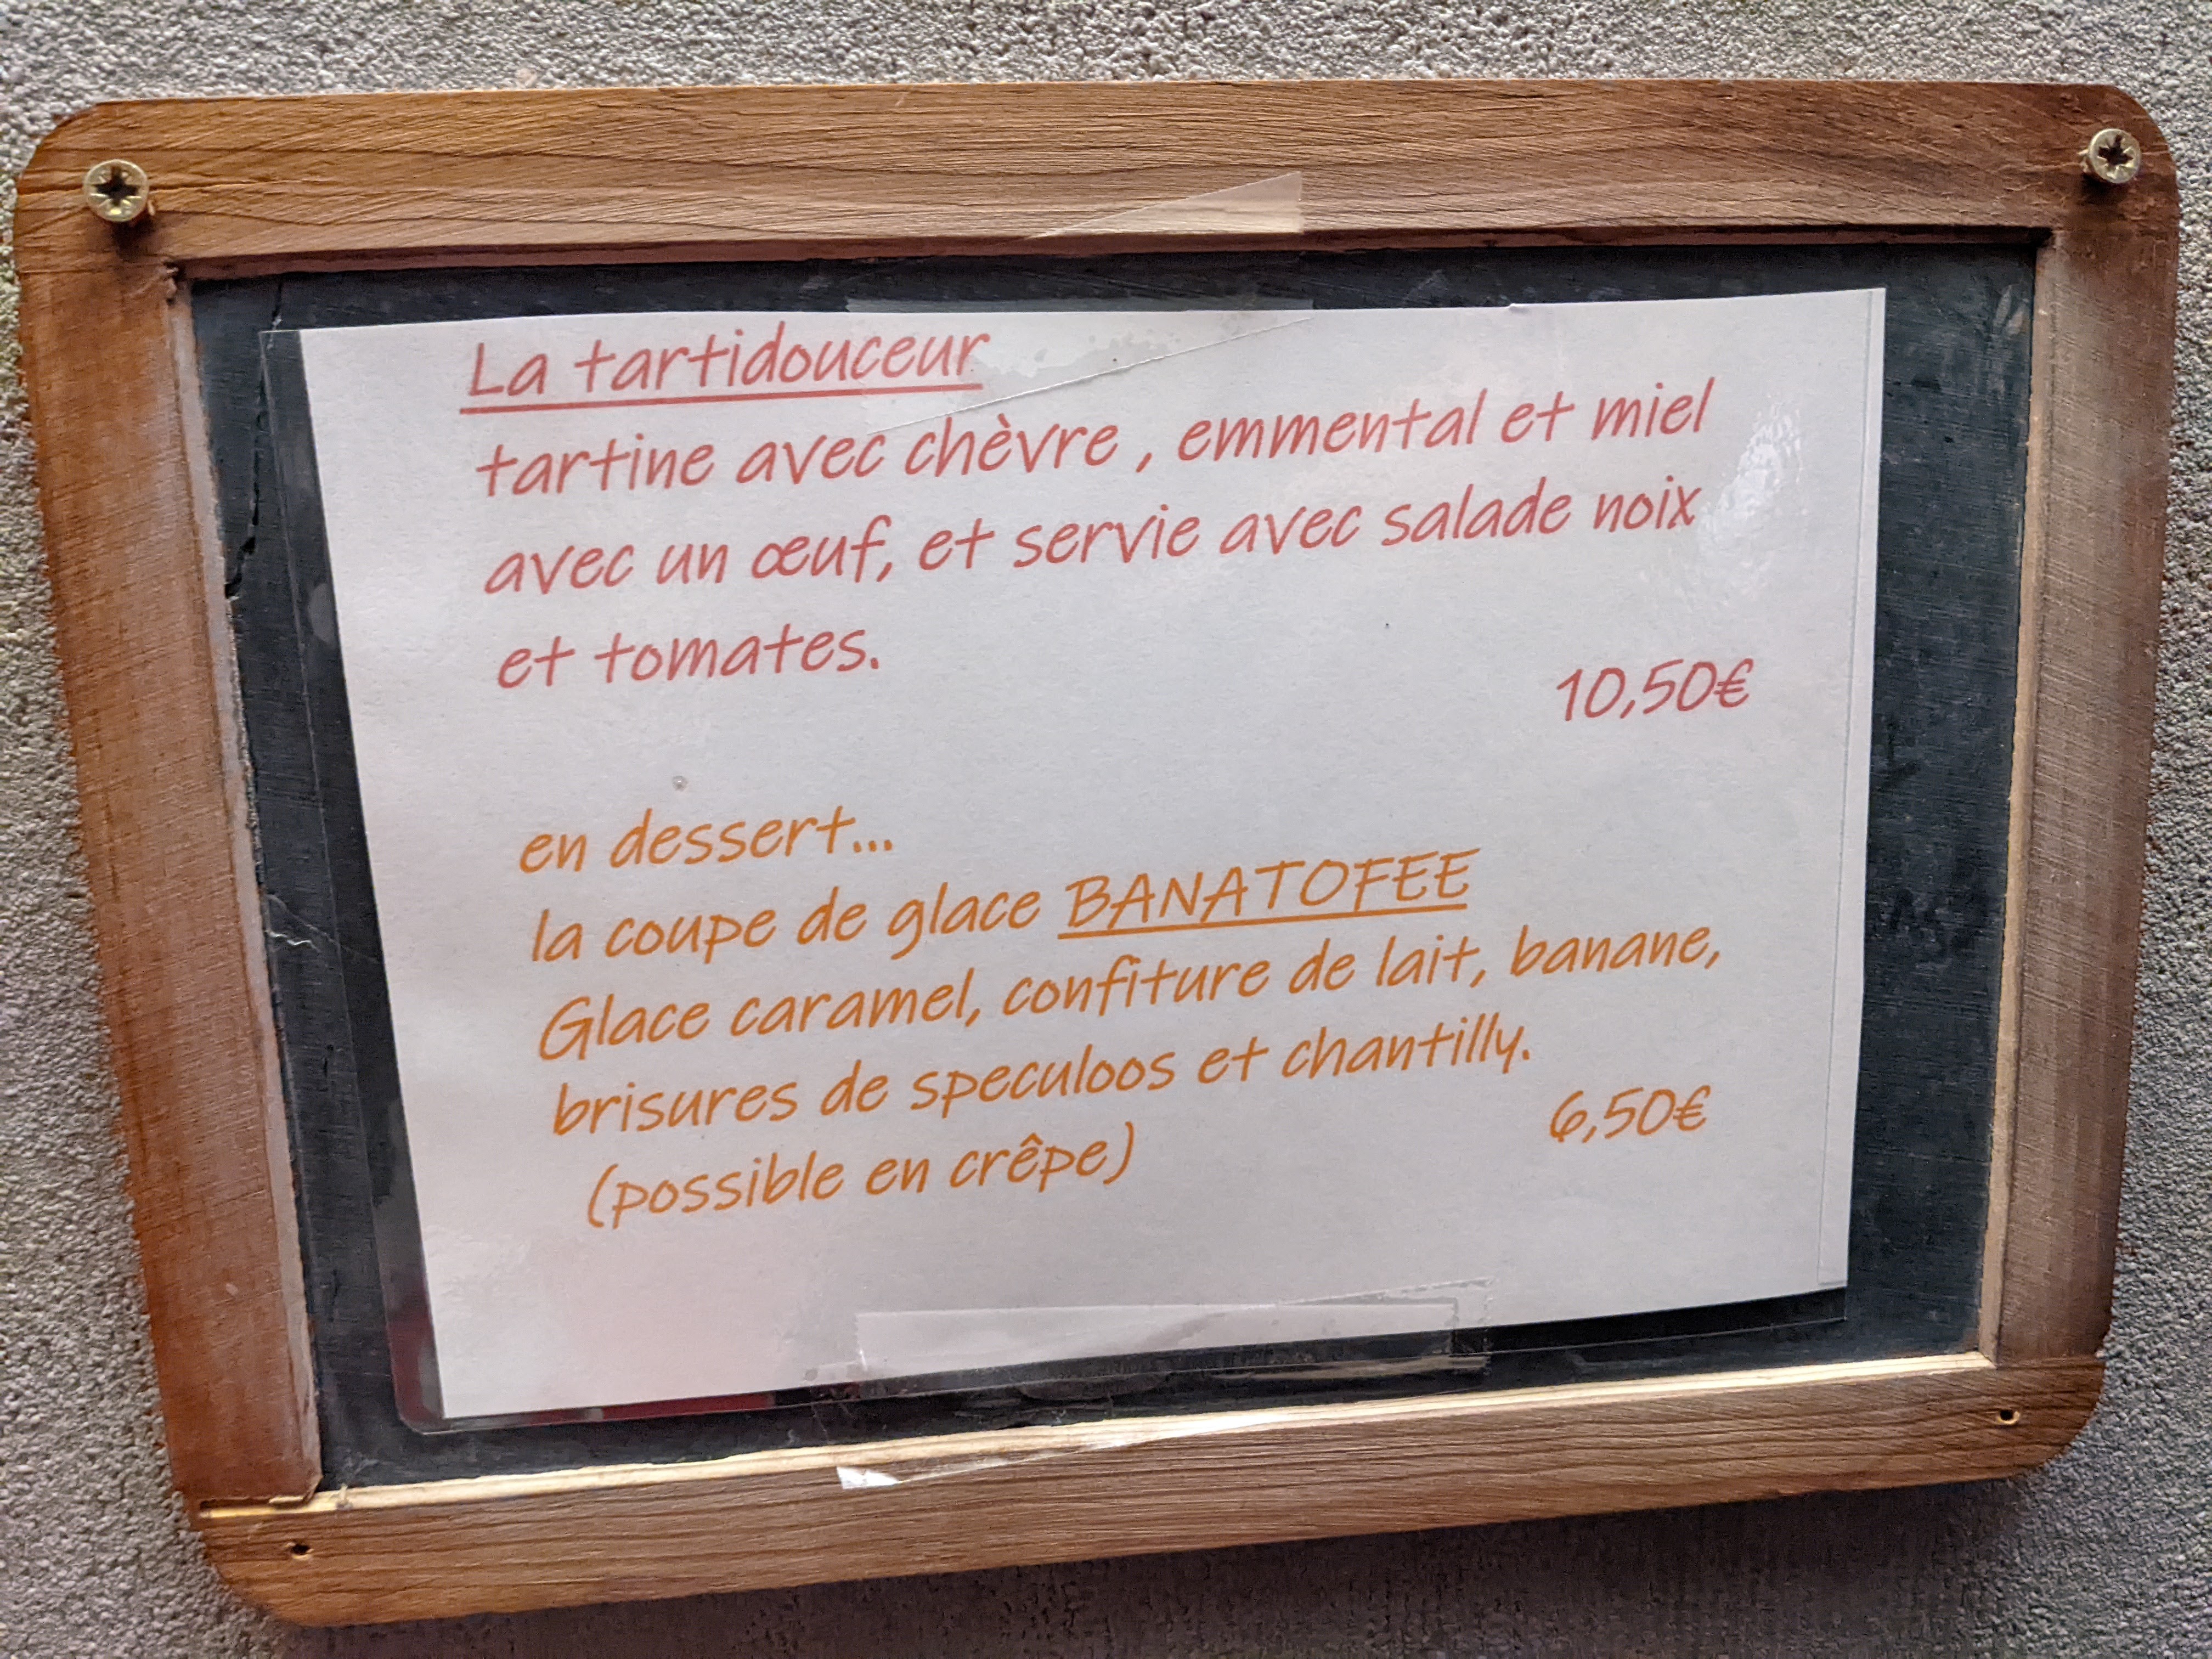 La tartidouceur
tartine avec chèvre , emmental et miel
avec un œuf, et servie avec salade noix
et tomates.
10,50€
en dessert...
la coupe de glace BANATOFEE
Glace caramel, confiture de lait, banane,
brisures de speculoos et chantilly.
6,50€
(possible en crêpe)